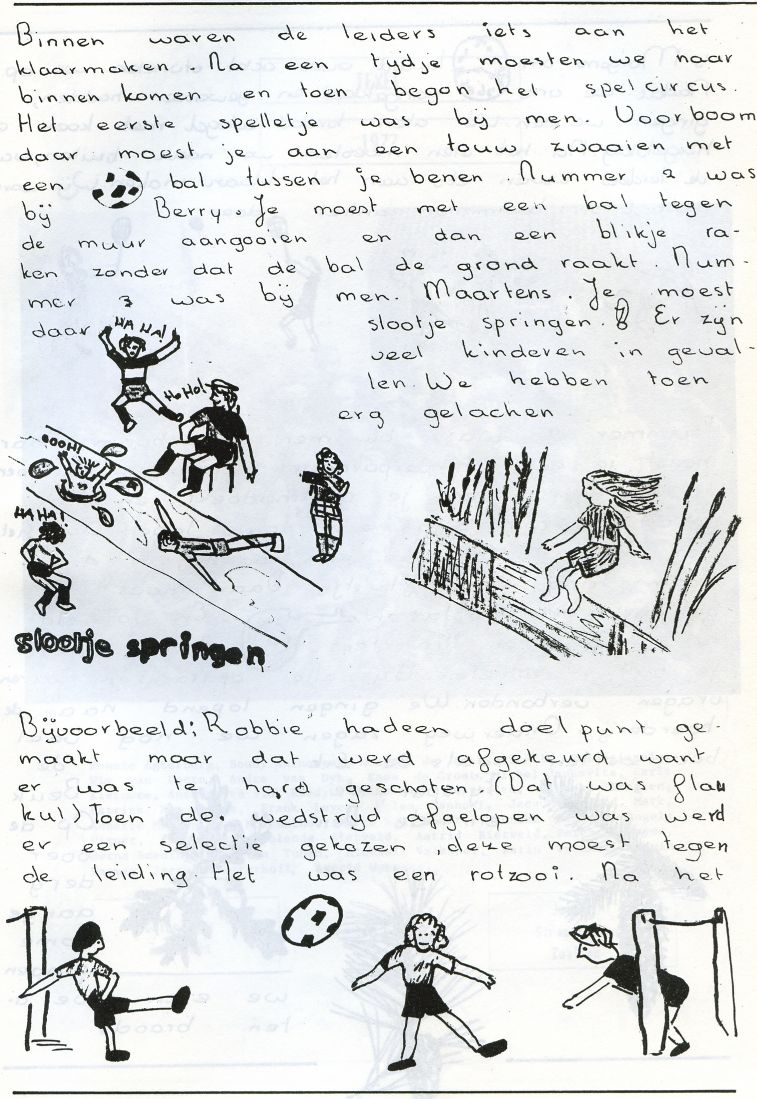 Binnen waren de leiders iets aan het
klaarmaken. Na een tijdje moesten we naar
binnen komen en toen begon het spel circus.
Het eerste spelletje was bij men. Voorboom
daar moest je aan een touw zwaaien met
een bal tussen je benen. Nummer 2 was
bij Berry. Je moest met een bal tegen
de muur aangooien en dan een blikje ra-
ken zonder dat de bal de grond raakt. Num-
mer 3 was bij men. Maartens. Je moest
daar slootje springen. Er zijn
veel kinderen in geval-
len. We hebben toen
erg gelachen
HA HA!
HoHo!
OOOH!
HA HA!
slootje springen
Bijvoorbeeld; Robbie had een doel punt ge-
maakt maar dat werd afgekeurd want
er was te hard geschoten. (Dat was flau
kul) Toen de wedstrijd afgelopen was werd
er een selectie gekozen, deze moest tegen
de leiding. Het was een rotzooi. Na het